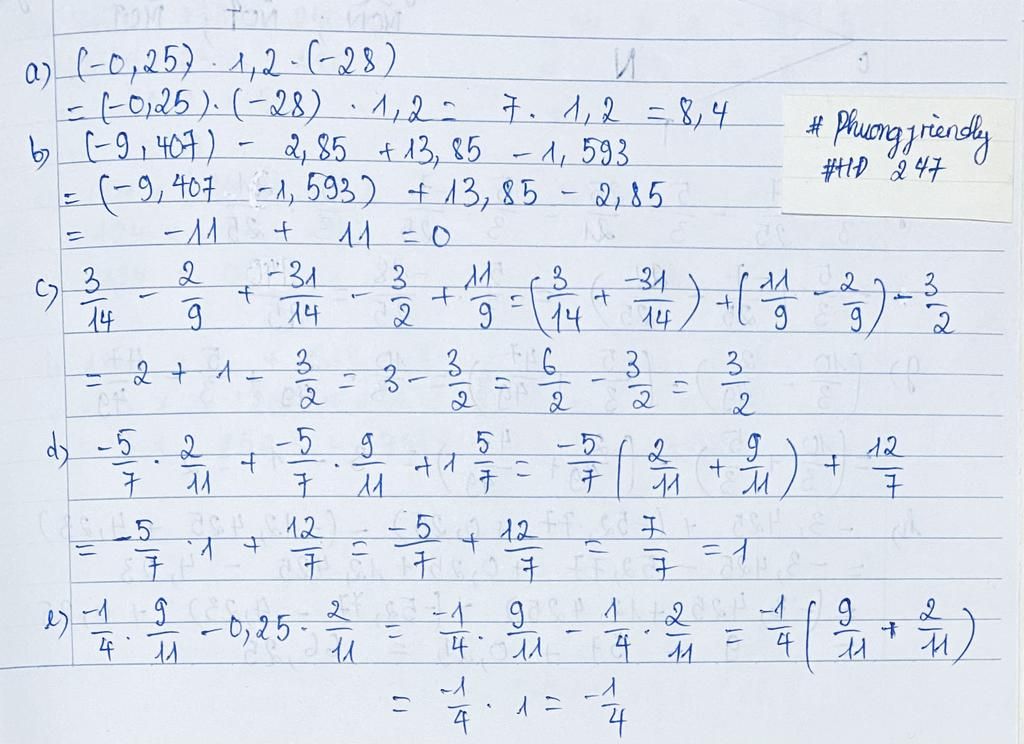 a) (-0,25) · 1,2 · (-28)
= (-0,25) · (-28) · 1,2 = 7 · 1,2 = 8,4
# Phuongfriendly
#HD 247
b) (-9,407) - 2,85 + 13,85 - 1,593
= (-9,407 - 1,593) + 13,85 - 2,85
= -11 + 11 = 0
c) 3/14 - 2/9 + -31/14 - 3/2 + 11/9 = (3/14 + -31/14) + (11/9 - 2/9) - 3/2
= 2 + 1 - 3/2 = 3 - 3/2 = 6/2 - 3/2 = 3/2
d) -5/7 · 2/11 + -5/7 · 9/11 + 1 5/7 = -5/7 (2/11 + 9/11) + 12/7
= -5/7 · 1 + 12/7 = -5/7 + 12/7 = 7/7 = 1
e) -1/4 · 9/11 - 0,25 · 2/11 = -1/4 · 9/11 - 1/4 · 2/11 = -1/4 (9/11 + 2/11)
= -1/4 · 1 = -1/4